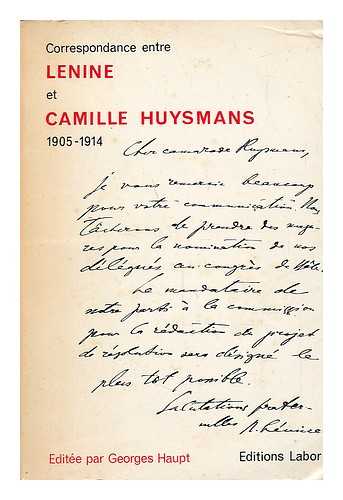 Correspondance entre
LENINE
et
CAMILLE HUYSMANS
1905-1914
Cher camarade Huysmans,
je vous remercie beaucoup
pour votre communication. Nous
tâcherons de prendre des mesu-
res pour la nomination de nos
délégués au congrès de
Le mandataire de
notre parti à la commission
pour la rédaction du projet
de résolution sera désigné le
plus tôt possible.
Salutations frater-
nelles N. Lénine
Editée par Georges Haupt
Editions Labor